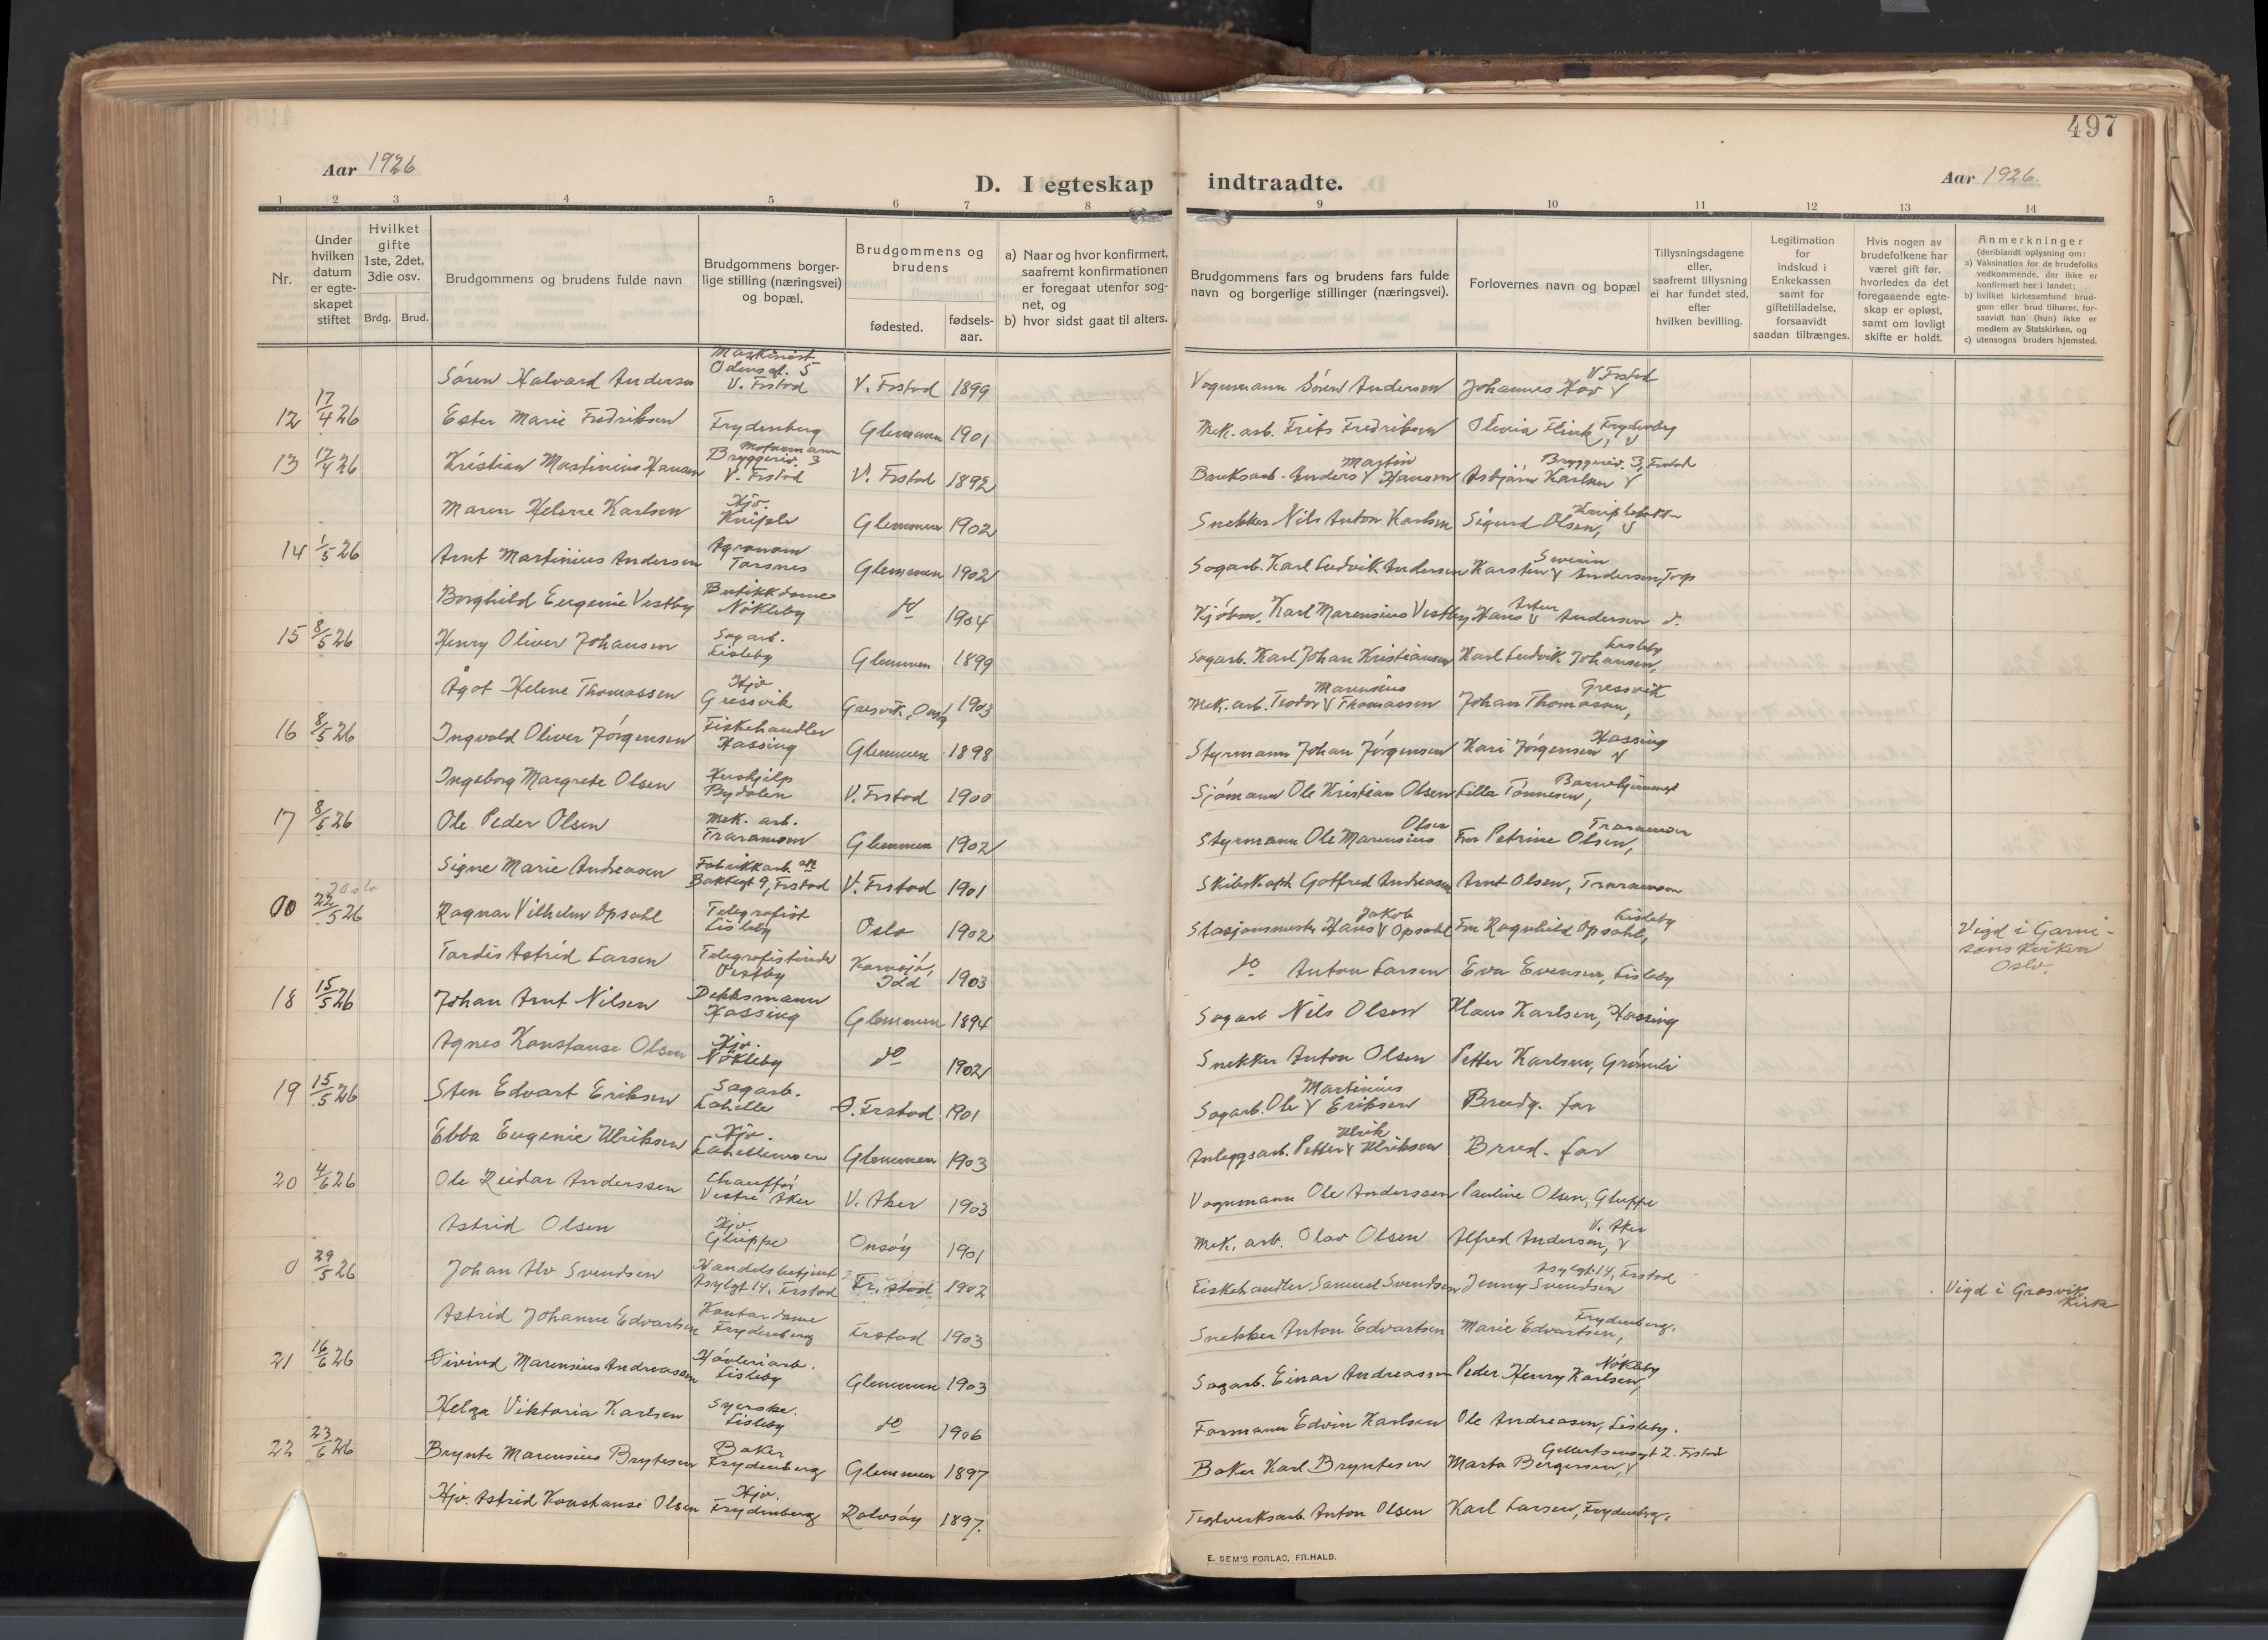 497
Aar 1926
D. I egteskap indtraadte.
Aar 1926.
1 2 3 4 5 6 7 8 9 10 11 12 13 14
Nr.
Under hvilken datum er egte-skapet stiftet
Hvilket gifte 1ste, 2det, 3die osv.
Brdg. Brud.
Brudgommens og brudens fulde navn
Brudgommens borger-lige stilling (næringsvei) og bopæl.
Brudgommens og brudens
fødested.
fødsels-aar.
a) Naar og hvor konfirmert, saafremt konfirmationen er foregaat utenfor sog-net, og
b) hvor sidst gaat til alters.
Brudgommens fars og brudens fars fulde navn og borgerlige stillinger (næringsvei).
Forlovernes navn og bopæl
Tillysningsdagene eller, saafremt tillysning ei har fundet sted, efter hvilken bevilling.
Legitimation for indskud i Enkekassen samt for giftetilladelse, forsaavidt saadan tiltrænges.
Hvis nogen av brudefolkene har været gift før, hvorledes da det foregaaende egte-skap er opløst, samt om lovligt skifte er holdt.
Anmerkninger
(deriblandt oplysning om:
a) Vaksination for de brudefolks vedkommende, der ikke er konfirmert her i landet;
b) hvilket kirkesamfund brud-gom eller brud tilhører, for-saavidt han (hun) ikke er medlem av Statskirken, og
c) utensogns bruders hjemsted.
Søren Halvard Andersen Maskinist Odensgt. 5 V. Frstad V. Frstad 1899 Vognmann Søren Andersen Johannes Hov V. Frstad
12 17/4 26 Ester Marie Fredriksen Frydenberg Glemmen 1901 Mek. arb. Frits Fredriksen Olivia Flink, Frydenberg
13 17/4 26 Kristian Martinius Hansen Bryggeriv. 3 V. Frstad V. Frstad 1892 Bruksarb. Anders Martin Hansen Asbjørn Karlsen Bryggeriv. 3, Frstad
Maren Helene Karlsen Hjv. Kniple Glemmen 1902 Snekker Nils Anton Karlsen Sigurd Olsen,
14 1/5 26 Arnt Martinius Andersen Agronom Torsnes Glemmen 1902 Sagarb. Karl Ludvik Andersen Karsten Severin Andersen, Torp
Borghild Eugenie Vestby Butikkdame Nøkleby do 1904 Kjøbm. Karl Marensius Vestby Hans Artur Andersen d.
15 8/5 26 Henry Oliver Johansen Sagarb. Lisleby Glemmen 1899 Sagarb. Karl Johan Kristiansen Karl Ludvik Johansen, Lisleby
Ågot Helene Thomassen Hjv Gressvik Gresvik, Onsøy 1903 Mek. arb. Teodor Marensius Thomassen Johan Thomassen, Gressvik
16 8/5 26 Ingvald Oliver Jørgensen Fiskehandler Hassing Glemmen 1898 Styrmann Johan Jørgensen Kari Jørgensen Hassing
Ingeborg Margrete Olsen Hushjelp Bydalen V. Frstad 1900 Sjømann Ole Kristian Olsen Lilla Tønnesen, Barnehjemmet
17 8/5 26 Ole Peder Olsen Mek. arb. Traramoen Glemmen 1902 Styrmann Ole Marensius Olsen Fru Petrine Olsen, Traramoen
Signe Marie Andreasen Fabrikkarb. Bakkegt 9, Frstad V. Frstad 1901 Skibskapt. Gotfred Andreasen Arnt Olsen, Traramoen
00 Oslo 22/5 26 Ragnar Vilhelm Opsahl Telegrafist Lisleby Oslo 1902 Stasjonsmester Hans Jakob Opsahl Fru Ragnhild Opsahl, Lisleby Vigd i Garni-sonskirken Oslo.
Tordis Astrid Larsen Telegrafistinde Vestby Kornsjø, Idd 1903 do Anton Larsen Eva Evensen, Lisleby
18 15/5 26 Johan Arnt Nilsen Dekksmann Hassing Glemmen 1894 Sagarb Nils Olsen Klaus Karlsen, Hassing
Agnes Konstanse Olsen Hjv. Nøkleby do 1902 Snekker Anton Olsen Petter Karlsen, Grønli
19 15/5 26 Sten Edvart Eriksen Sagarb. Lahelle Ø. Frstad 1901 Sagarb. Ole Martinius Eriksen Brudg. far
Ebba Eugenie Ulriksen Hjv. Lahellemoen Glemmen 1903 Anleggsarb. Petter Ulrik Ulriksen Brud. far
20 4/6 26 Ole Reidar Anderssen Chauffør Vestre Aker V. Aker 1903 Vognmann Ole Anderssen Pauline Olsen, Gluppe
Astrid Olsen Hjv. Gluppe Onsøy 1901 Mek. arb. Olav Olsen Alfred Andersen, V. Aker
0 29/5 26 Johan Alv Svendsen Handelsbetjent Asylgt 14, Frstad Fr.stad 1902 Fiskehandler Samuel Svendsen Jenny Svendsen Asylgt 14, Frstad Vigd i Gresvik Kirke
Astrid Johanne Edvartsen Kontordame Frydenberg Frstad 1903 Snekker Anton Edvartsen Marie Edvartsen, Frydenberg.
21 16/6 26 Øivind Marensius Andreassen Høvleriarb. Lisleby Glemmen 1903 Sagarb. Einar Andreassen Peder Henry Karlsen, Nøkleby
Helga Viktoria Karlsen Syerske. Lisleby do 1906 Formann Edvin Karlsen Ole Andreasen, Lisleby.
22 23/6 26 Brynte Marensius Bryntesen Baker Frydenberg Glemmen 1897 Baker Karl Bryntesen Marta Børgersen, Gellertsensgt 2. Frstad
Hjv. Astrid Konstanse Olsen Hjv. Frydenberg Rolvsøy 1897. Teglverksarb. Anton Olsen Karl Larsen, Frydenberg.
E. SEM'S FORLAG, FR.HALD.